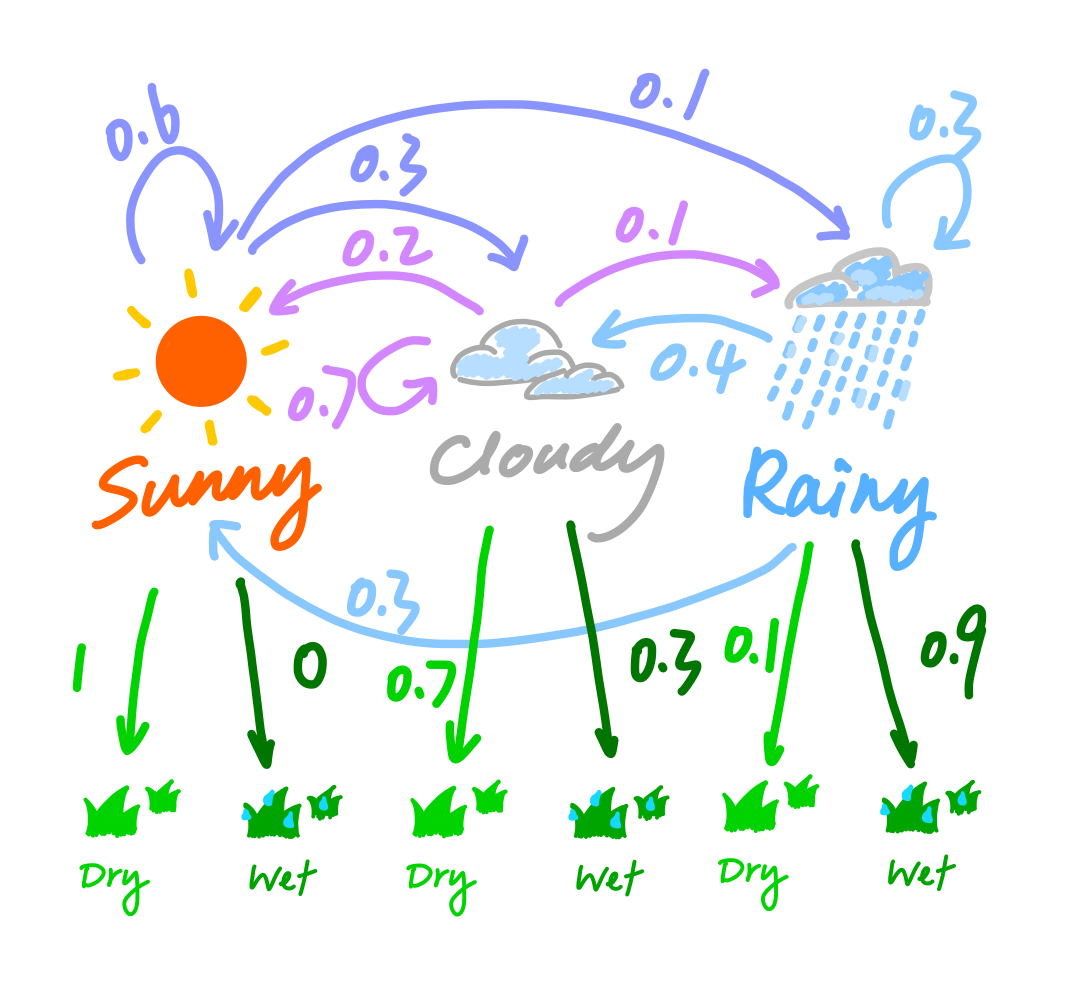 0.6
0.1
0.3
0.3
0.2
0.1
0.7
0.4
Sunny
Cloudy
Rainy
0.3
1
0
0.7
0.3
0.1
0.9
Dry
Wet
Dry
Wet
Dry
Wet